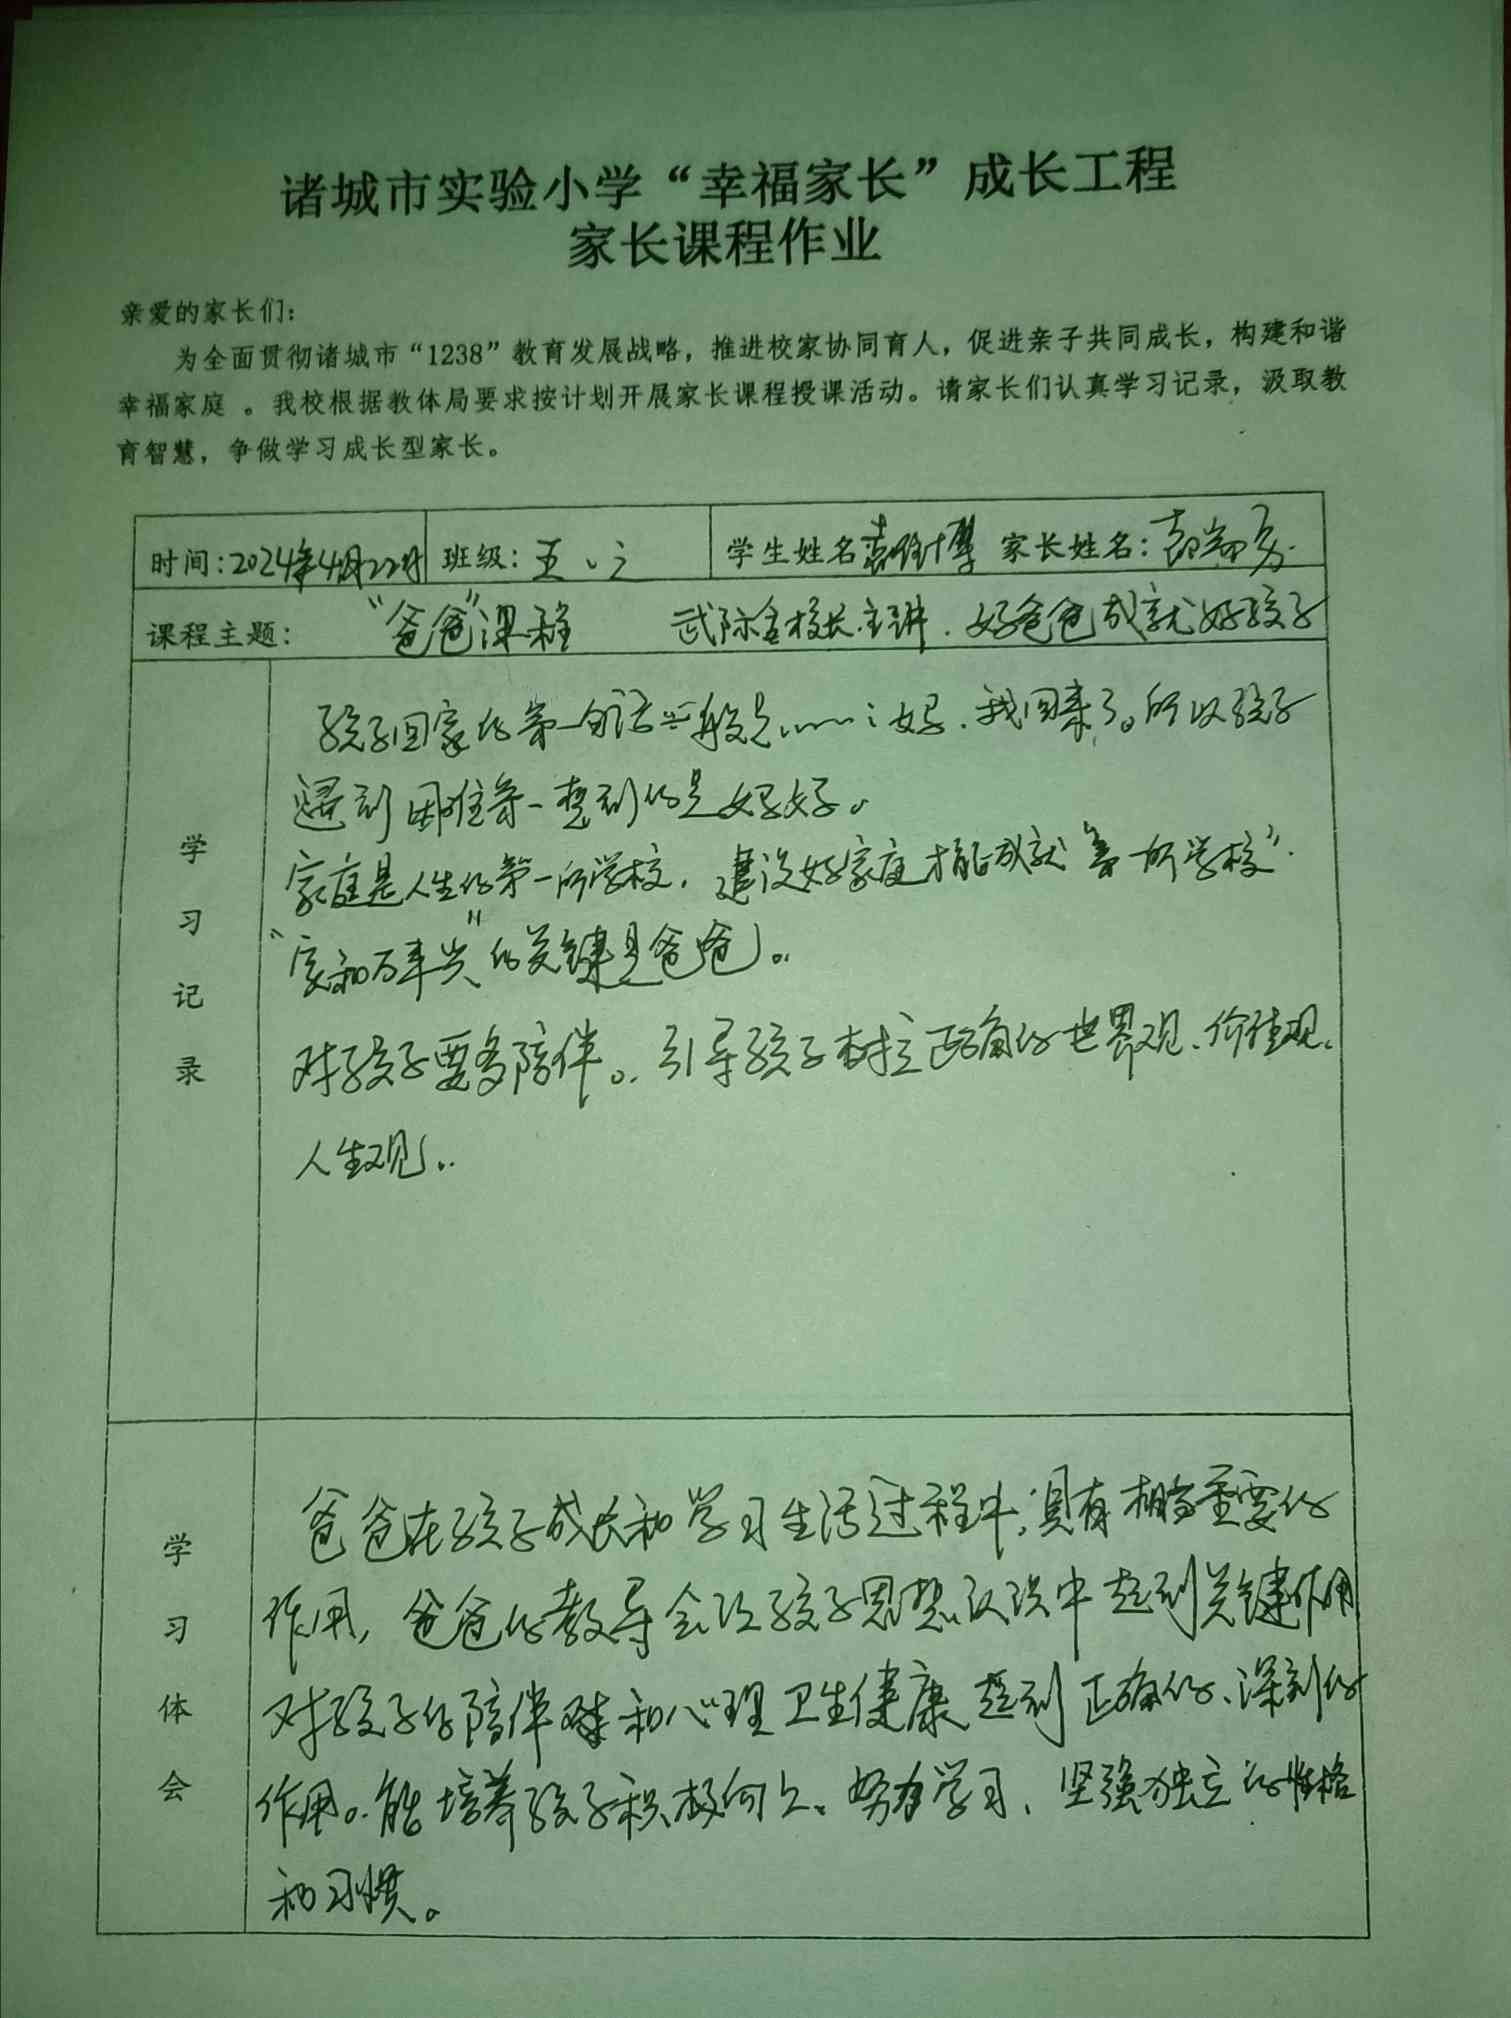 诸城市实验小学“幸福家长”成长工程
家长课程作业
亲爱的家长们：
为全面贯彻诸城市“1238”教育发展战略，推进校家协同育人，促进亲子共同成长，构建和谐
幸福家庭 。我校根据教体局要求按计划开展家长课程授课活动。请家长们认真学习记录，汲取教
育智慧，争做学习成长型家长。
时间：2024年4月22日 班级：五、 学生姓名 家长姓名：
课程主题： “爸爸”课程 校长主讲．好爸爸成就好孩子
学习记录
孩子回家的第一句话一般是……：妈．我回来了。所以孩子
遇到困难第一想到的是妈妈。
家庭是人生的第一所学校．建设好家庭才能成就“第一所学校”．
“家和万事兴”的关键是爸爸。
对孩子要多陪伴。引导孩子树立正确的世界观、价值观、
人生观。
学习体会
爸爸在孩子成长和学习生活过程中，具有相当重要的
作用，爸爸的教导会让孩子思想认识中起到关键作用
对孩子的陪伴 和心理卫生健康起到正确的、深刻的
作用。能培养孩子积极向上、努力学习、坚强独立的性格
和习惯。